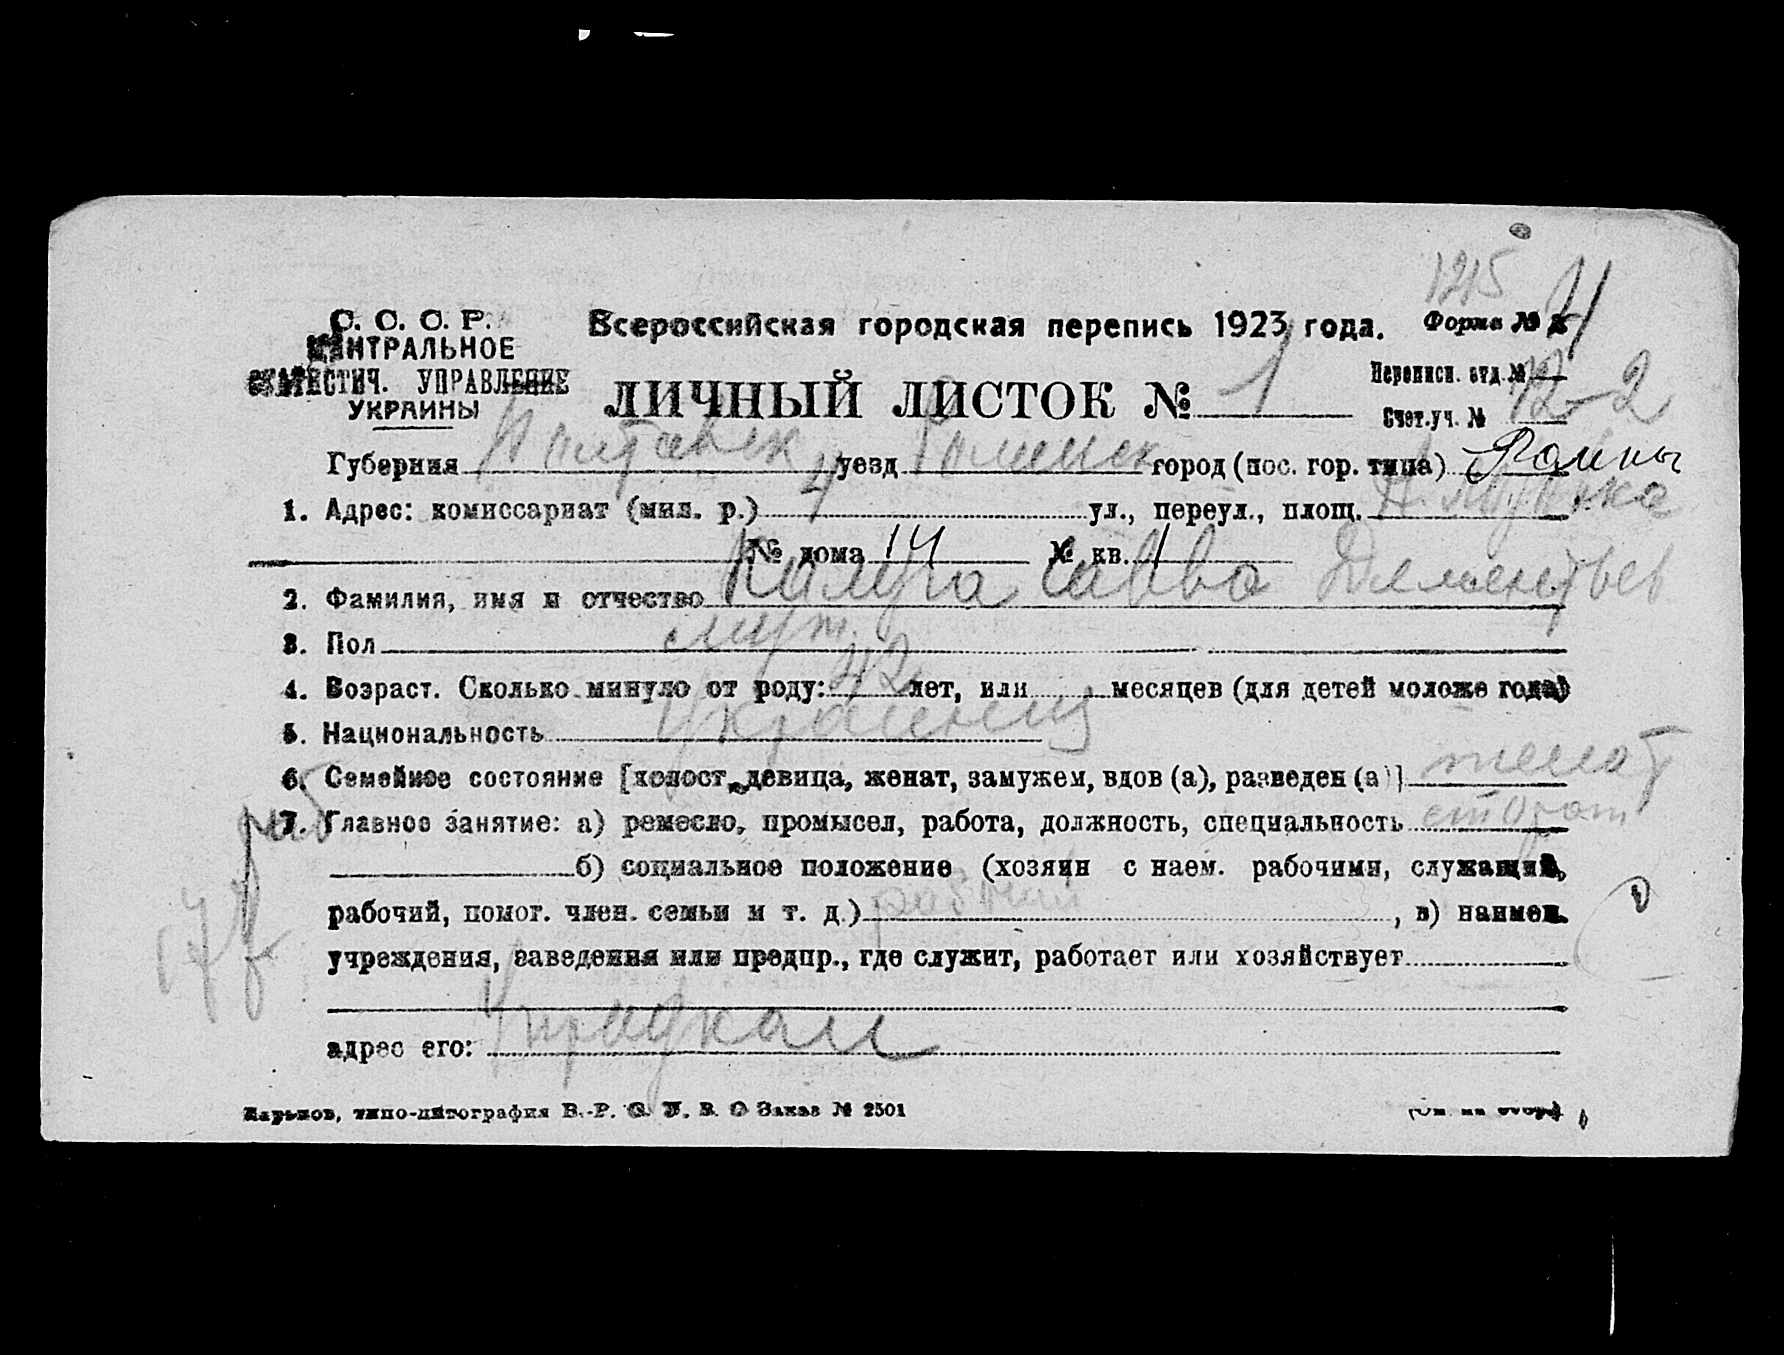 1215
С. С. С. Р.
ЦЕНТРАЛЬНОЕ
СТАТИСТИЧ. УПРАВЛЕНИЕ
УКРАИНЫ
Всероссийская городская перепись 1923 года. Форма №
ЛИЧНЫЙ ЛИСТОК № 1
Переписн. отд. №
Счет. уч. № 12-2
Губерния Полтавск уезд Роменск город (пос. гор. типа) Ромны
1. Адрес: комиссариат (мил. р.) ул., переул., площ.
№ дома 14 № кв. 1
2. Фамилия, имя и отчество Савва Дементьев
3. Пол муж.
4. Возраст. Сколько минуло от роду: 42 лет, или месяцев (для детей моложе года)
5. Национальность Украинец
6. Семейное состояние [холост, девица, женат, замужем, вдов (а), разведен (а)] женат
7. Главное занятие: а) ремесло, промысел, работа, должность, специальность сторож
раб
б) социальное положение (хозяин с наем. рабочими, служащий,
рабочий, помог. член. семьи и т. д.) рабочий , в) наимен.
учреждения, заведения или предпр., где служит, работает или хозяйствует
адрес его:
Харьков, типо-литография Заказ № 2501